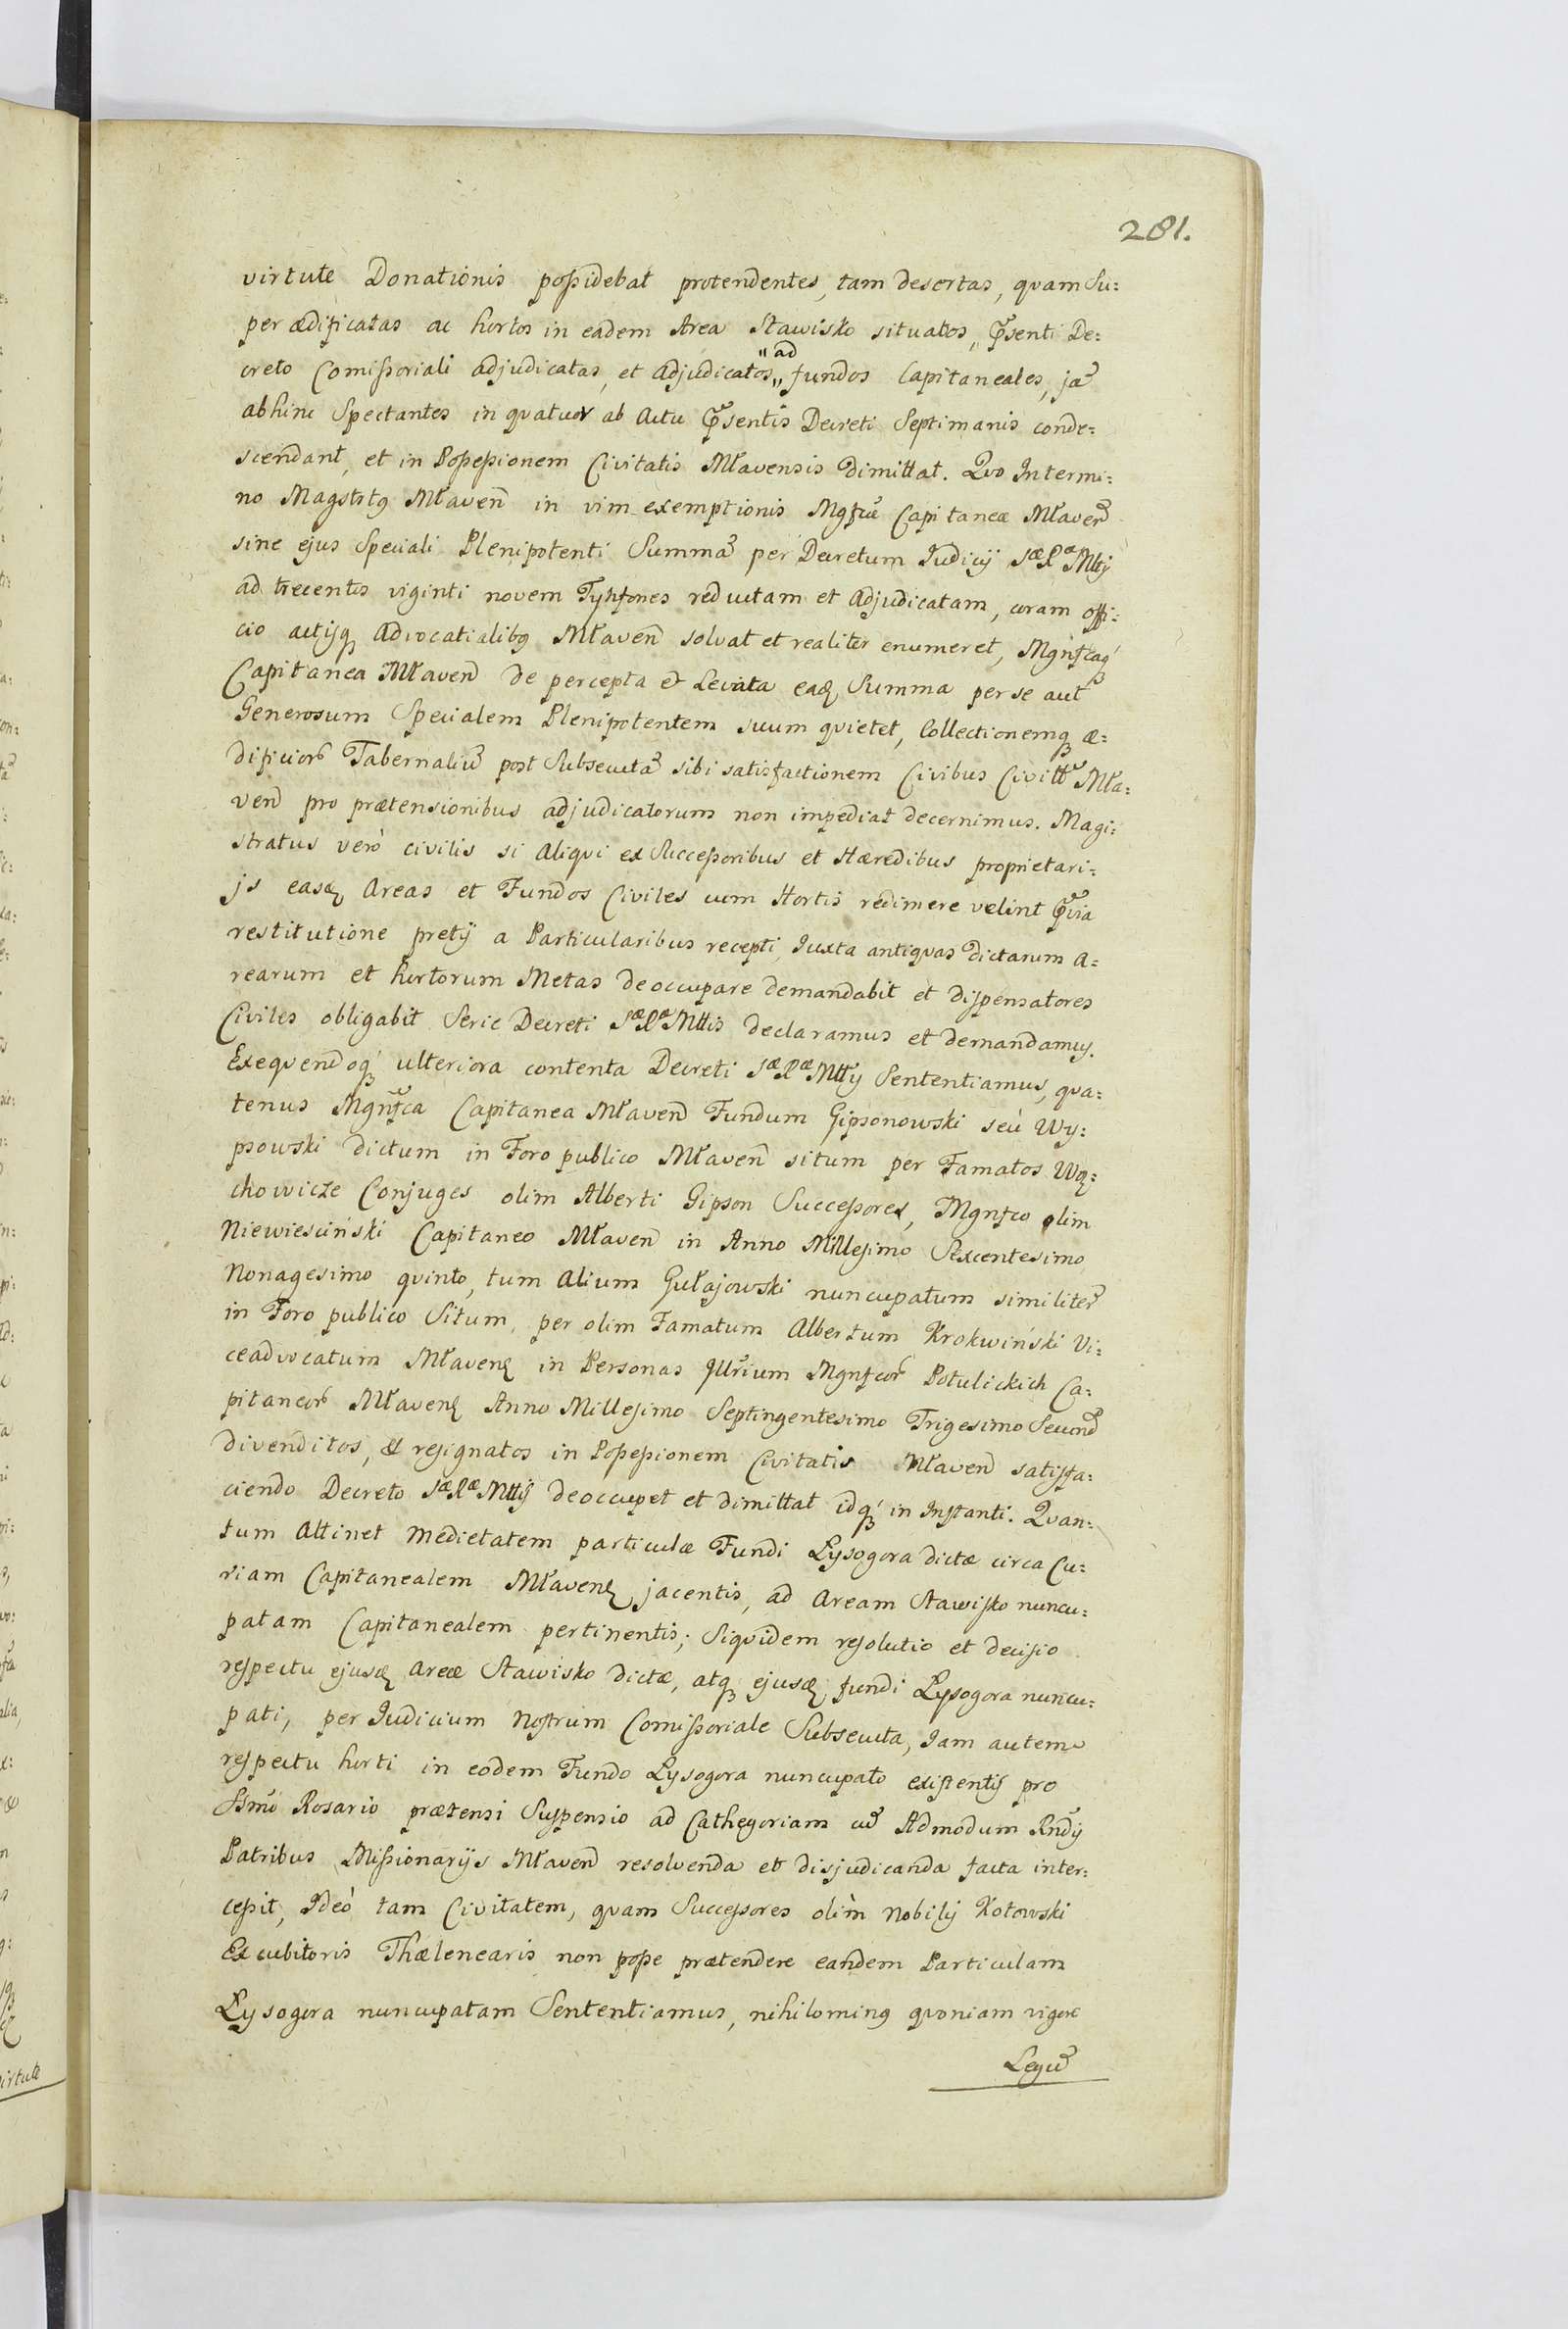 281.
virtute Donationis possidebat protendentes, tam desertas, quam Su:
per ædificatas ac hortos in eadem Area Stawisko situatos, Pr̃senti De:
creto Comissoriali adjudicatas, et adjudicatos „ad„ fundos Capitaneales, ja᷃
abhinc Spectantes in quatuor ab actu Pr̃sentis Decreti Septimanis conde:
scendant, et in Possessionem Civitatis Mławensis dimittat. Quo Intermi:
no Magstrtꝰ Mławen̄ in vim exemptionis Capitaneæ Mławen̄
sine ejus Speciali Plenipotenti Summa᷃ per Decretum Judicij Sæ Ræ Mttij
ad trecentos viginti novem Tynfones reductam et adjudicatam, coram offi:
cio actisq̃ advocatialibꝰ Mławen̄ solvat et realiter enumeret, Mgnfcaq̃
Capitanea Mławen̄ de percepta et Levata eađ Summa per se aut
Generosum Specialem Plenipotentem suum quietet, Collectionemq̃ æ:
dificior̃ Tabernaliu᷃ post Subsecuta᷃ sibi satisfactionem Civibus Civitt̃ Mła:
ven̄ pro prætensionibus adjudicatorum non impediat decernimus. Magi:
stratus verò civilis si aliqui ex Successoribus et Hæredibus proprietari:
js easđ Areas et Fundos Civiles cum Hortis redimere velint Pr̃via
restitutione pretij a Particularibus recepti, Juxta antiquas dictarum a:
rearum et hortorum Metas deoccupare demandabit et dispensatores
Civiles obligabit Serie Decreti Sæ Ræ Mttis declaramus et demandamus.
Exequendoq̃ ulteriora contenta Decreti Sæ Ræ Mttij Sententiamus, qua:
tenus Mgnfca Capitanea Mławen̄ Fundum Gipsonowski seù Wy:
psowski dictum in Foro publico Mławen̄ situm per Famatos
chowicze Conjuges olim Alberti Gipson Successores, Mgnfco olim
Niewiesciński Capitaneo Mławen̄ in Anno Millesimo Sexcentesimo
Nonagesimo quinto, tum alium Gułajowski nuncupatum similiter
in Foro publico Situm, per olim Famatum Albertum Krokwiński Vi:
ceadvocatum Mławen̄ in Personas Jllr̃ium Mgnfcor̃ Potulickich Ca:
pitaneor̃ Mławen̄ Anno Millesimo Septingentesimo Trigesimo Secund᷃
divenditos, et resignatos in Possessionem Civitatis Mławen̄ satisfa:
ciendo Decreto Sæ Ræ Mttij deoccupet et dimittat idq̃ in Instanti. Quan:
tum attinet medietatem particulæ Fundi Lysogora dictæ circa Cu:
riam Capitanealem Mławen̄ jacentis, ad Aream Stawisko nuncu:
patam Capitanealem pertinentis; Siquidem resolutio et decisio
respectu ejusđ Areæ Stawisko dictæ, atq̃ ejusđ fundi Lysogora nuncu:
pati, per Judicium nostrum Comissoriale Subsecuta, Jam autem
respectu horti in eodem Fundo Lysogora nuncupato existentis pro
Ssmo Rosario prætensi Suspensio ad Cathegoriam cu᷃ Admodum Rndis
Patribus Missionarijs Mławen̄ resolvenda et disjudicanda facta inter:
cessit, Ideò tam Civitatem, quam Successores olim Nobilis Kotowski
Excubitoris Thælenearis non posse prætendere eandem Particulam
Lysogora nuncupatam Sententiamus, nihilominꝰ quoniam vigore
Legu᷃